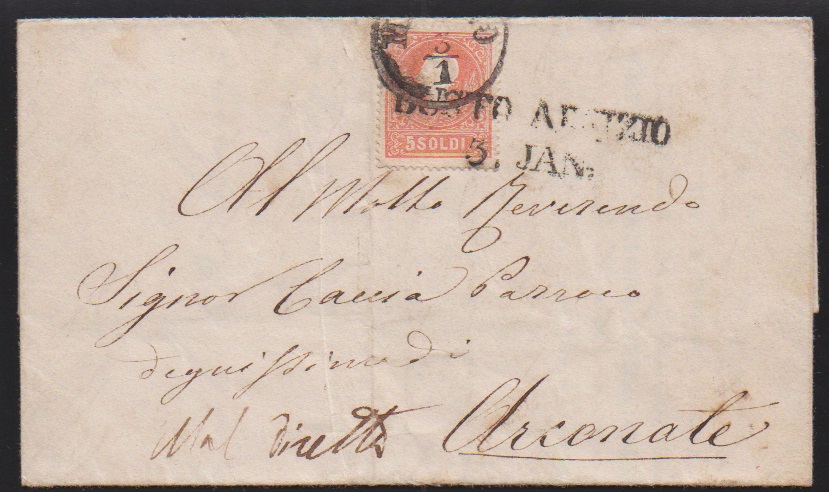 3
1
5 SOLDI
BUSTO ARSIZIO
3. JAN.
Al Molto Reverendo
Signor Caccia Parroco
degnissimo di
Mal diretta Arconate